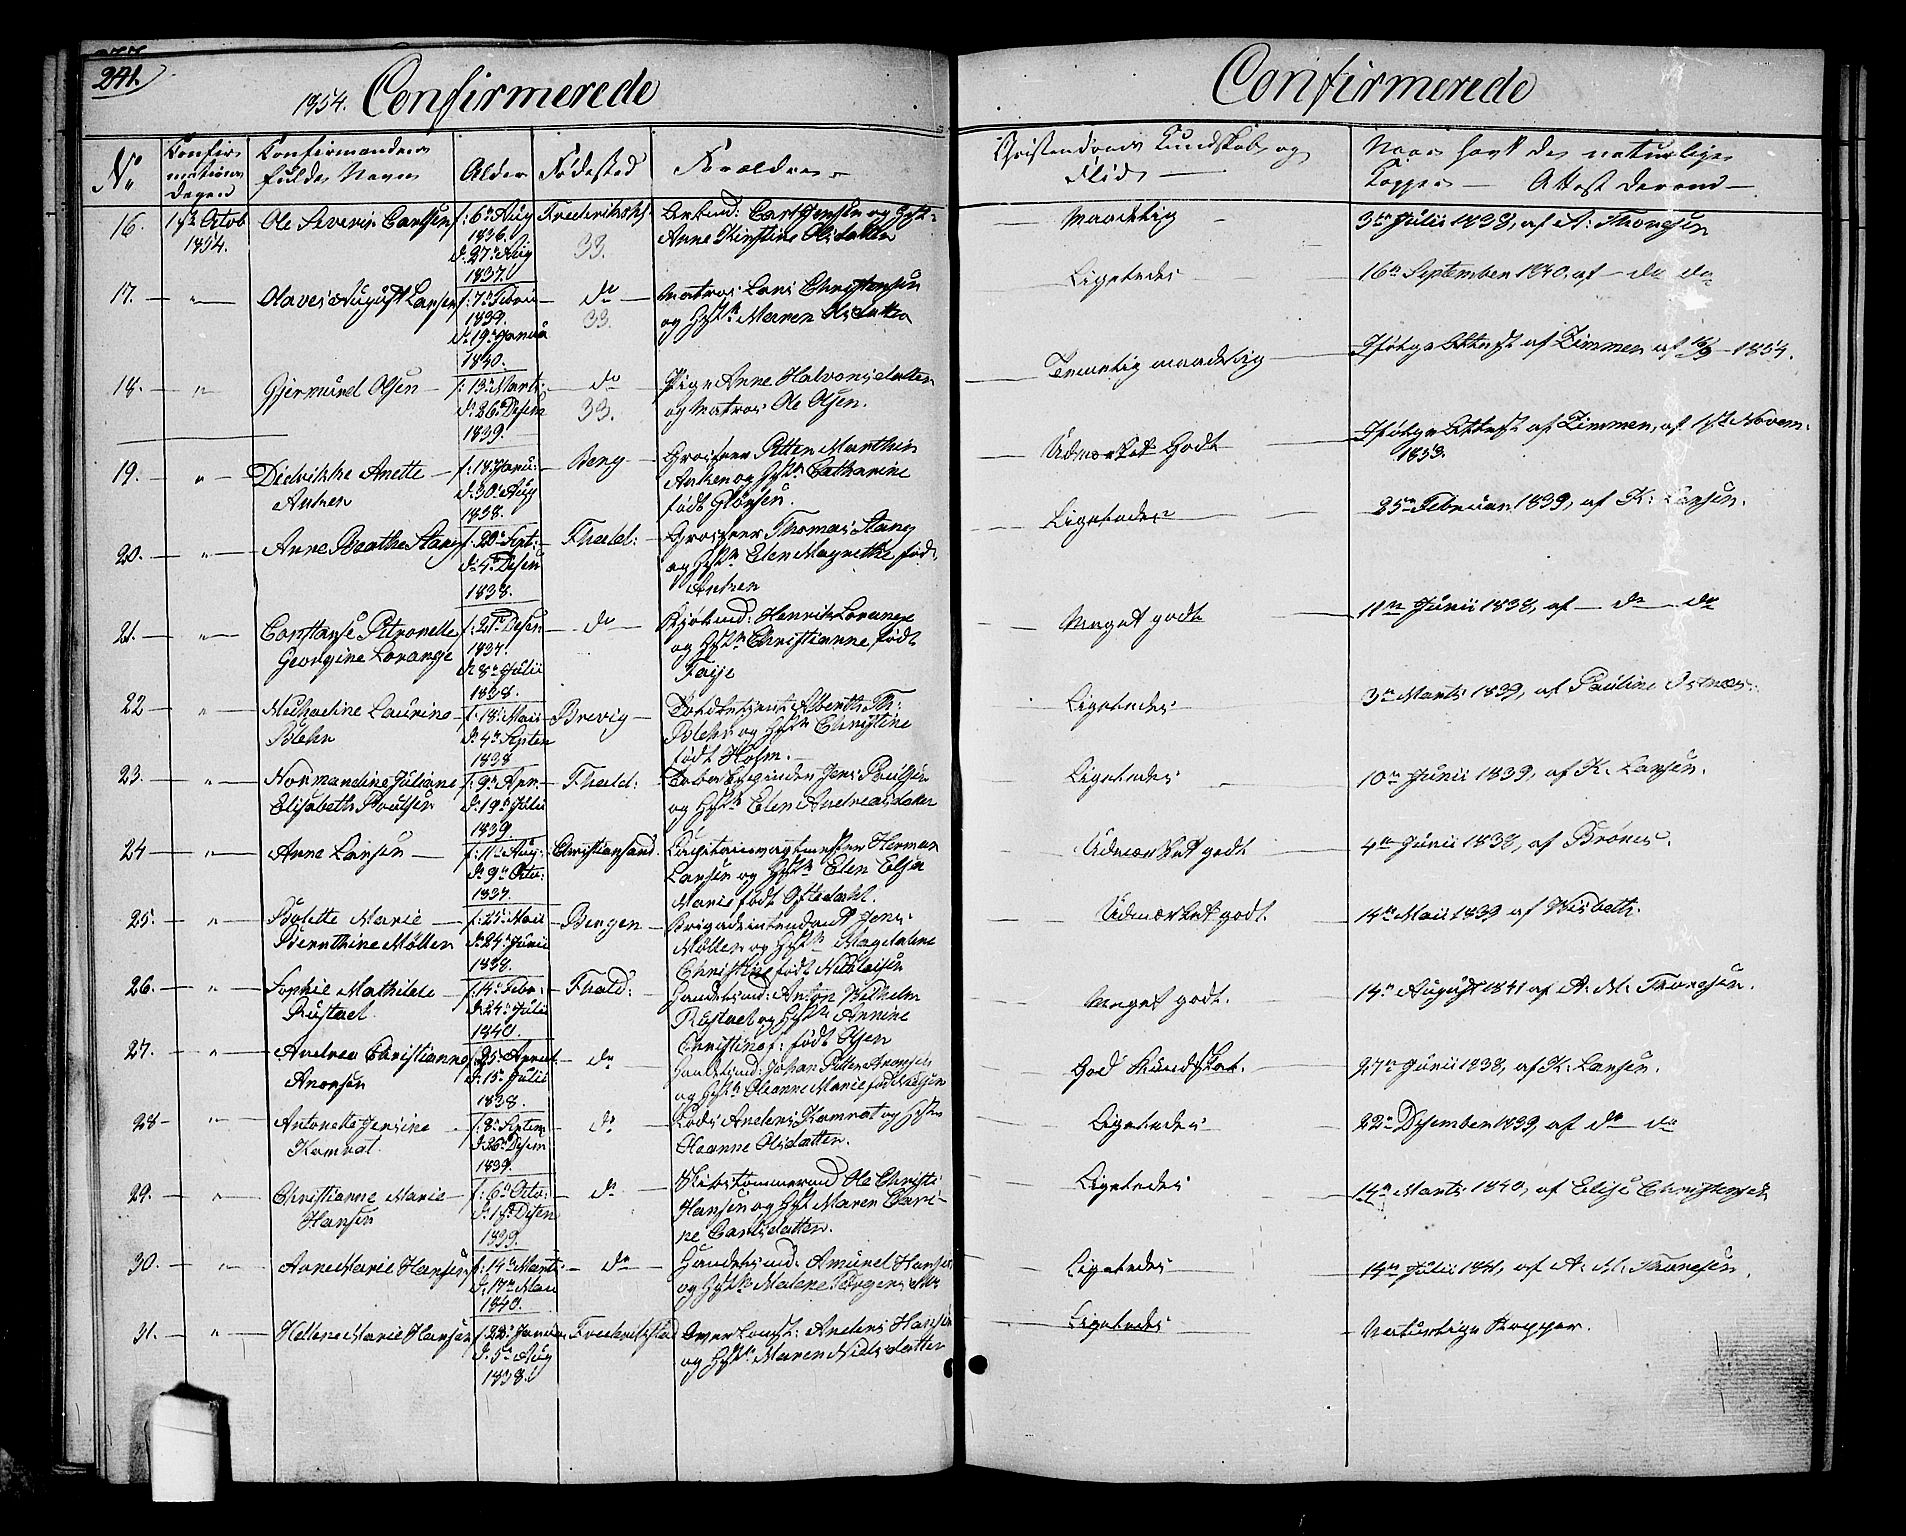 241.
1854. Confirmerede
Confirmerede
No
Confir-
mations
Dagen
Confirmandens
fulde Navn
Alder
Fødested
Forældre
Christendoms Kundskab og
Flid
Naar havt de naturlige
Kopper — Attest derom —
16. 1ste Octob 1854. Ole Severin Carlsen f: 6te Aug 1836. d: 27de Aug 1837. Frederikshl: 33. Carl Jensen og Hst: Anne Kirstine Olsdatter Maadelig 3die Julii 1838, af A. Thoresen
17. — " — Olaves August Larsen f: 7de Febru 1839. d: 19de Janua 1840. — do — 33. Matros Lars Christensen og Hstr Maren Olsdatter Ligeledes 16de September 1840. af — do do
18. — " — Gjermund Olsen — f: 13de Marts d: 26de Desem 1839. — do — 33. Pige Anne Halvorsdatter og Matros Ole Olsen. Temmelig maadelig Ifølge Attest af Zimmer af 16/9 – 1854.
19. — " — Didrikke Anette Anker f: 18 Janu: d: 30te Aug 1838. Berg — Grosserer Petter Marthin Anker og Hstr Catharine født Glørsen. Udmærket Godt Ifølge Attest af Zimmer, af 1ste Novem. 1853.
20. — " — Anne Bearthe Stang f: 20de Sept: d: 4de Desem 1838. Fhald: — Grosserer Thomas Stang og Hstr Elen Magrethe født Anker Ligeledes 25de Februar 1839, af K. Larsen.
21. — " — Constanse Petronelle Georgine Lorange f: 21de Desem 1837. d: 8de Julii 1838. — do — Kjøbmd: Henrik Lorange og Hstr Christianne født Faye Meget godt 11te Junii 1838, af — do — do
22 " — Michaeline Laurine Blehr f: 18de Maii d: 4de Septem 1838 Brevig — Toldbetjent Alberth Th: Blehr og Hstr Christine født Holm. — Ligeledes 3die Marts 1839, af Pauline
23. — " — Normandine Juliane Elisabeth Poulsen f: 9de Apr: d: 19de Julii 1839. Fhald: Jens Poulsen og Hstr Elen Andreasdatter Ligeledes 10de Junii 1839, af K. Larsen.
24 — " — Anne Larsen — f: 11te Aug: d: 9de Octo: 1837. Christiansand. Capitainvagtmester Herman Larsen og Hstr Elen Elsen Marie født Oftedahl. Udmærket godt 4de Junii 1838, af Brønes.
25. — " — Bolette Marie Bernthine Møller f: 25. Maii d: 24de Junii 1838. Bergen — Brigadeintendant Jens Møller og Hstr Magdalene Christine født Nicolaisen Udmærket godt. 14de Maii 1839 af Wisbeth.
26. — " — Sophie Mathilde Rustad. f: 14de Febr: d: 24de Julii 1840. Fhald: Handelsmd: Anton Wilhelm Rustad og Hstr Annine Christine: født Olsen Meget godt. 14de August 1841 af A. M. Thoresen.
27. — " — Andrea Christianne Aronsen f: 25. April d: 15de Julii 1838. — do Handelsmd: Johan Petter Aronsen og Hstr Oleanne Marie født God Kundskab. 27de Junii 1838, af K. Larsen.
28 — " — Antonette Jensine Kamrat. f: 8de Septem d: 26de Desem 1839. — do Lods Anders Kamrat og Hstr Oleanne Olsdatter. Ligeledes 22de Desember 1839, af do do
29. — " — Christianne Marie Hansen f: 6te Octo: d: 18de Desem 1839. — do — Skibstømmermd Ole Christi: Hansen og Hst Maren Cari- ne Carlsdatter. Ligeledes 14de Marts 1840, af Elise Christensen
30. — " — Anne Marie Hansen f: 14de Marts d: 17de Mai 1840. — do — Handelsmd. Amund Hansen og Hstr Malene Jørgensdtr Ligeledes 14de Julii 1841, af A. M. Thoresen.
31. — " — Hellene Marie Hansen f: 22de Janua d: 5te Aug 1838. Frederikstad Overkonst: Anders Hansen og Hstr. Maren Nielsdatter Ligeledes Naturlige Kopper.